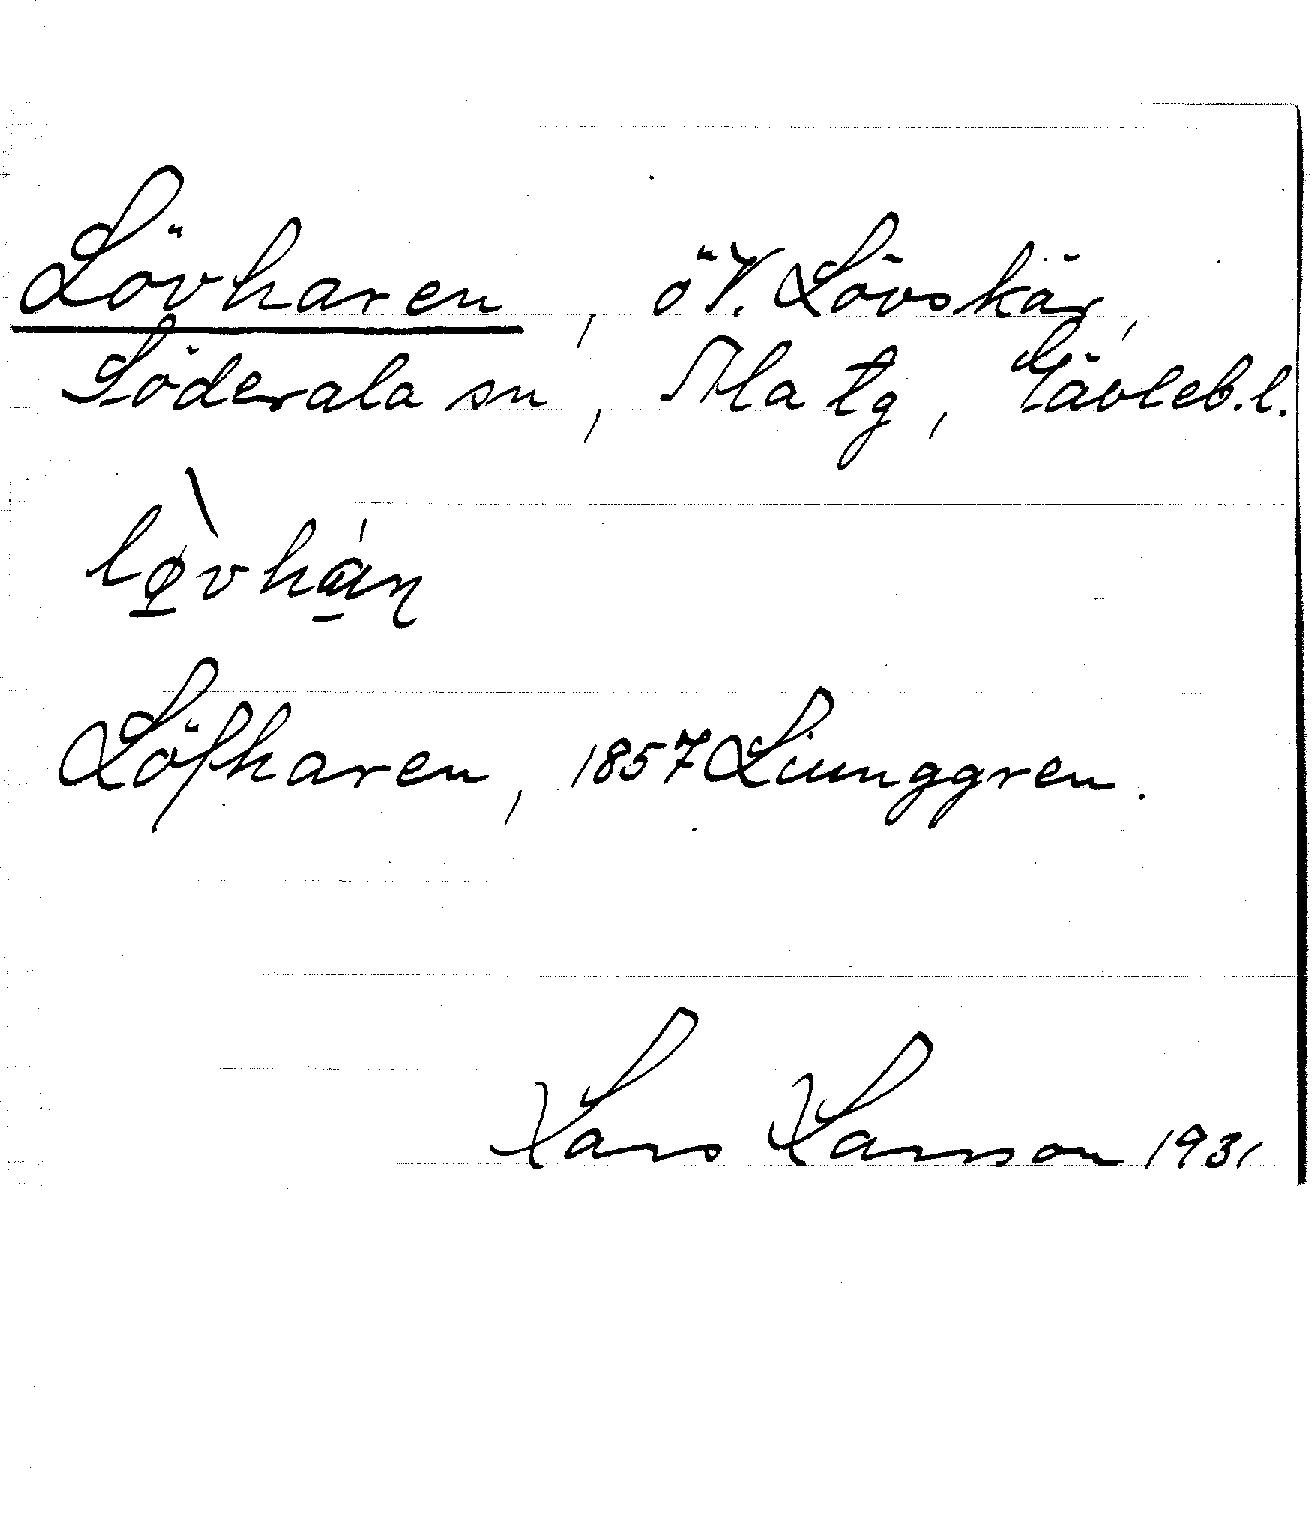 Lövharen, ö V. Lövskär,
Söderala sn, Ala tg, Gävleb.l.
Löfharen, 1857 Liunggren.
Lars Larsson 1931